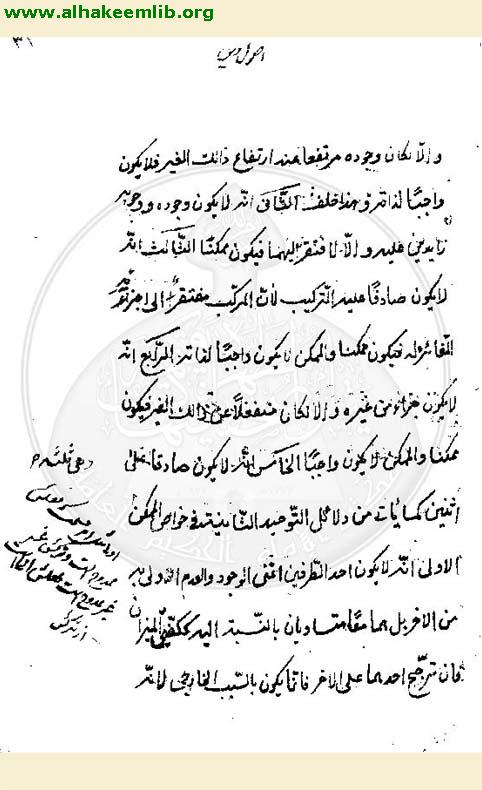 www.alhakeemlib.org
٣١
اصول دين
والّا لكان وجوده مرتفعا عند ارتفاع ذالك الغير فلا يكون
واجبًا لذاته وهذا خلف الثانى انّه لا يكون وجوده ووجوبه
زايدين عليه والّا لافتقر اليهما فيكون ممكنًا الثالث انّه
لا يكون صادقًا عليه التركيب لانّ المركّب مفتقر الى اجزائه
المغائرة له فيكون ممكنا والممكن لا يكون واجبًا لذاته الرّابع انّه
لا يكون جزاء من غيره والّا لكان منفعلًا عن ذالك الغير فيكون
ممكنًا والممكن لا يكون واجبًا الخامس انّه لا يكون صادقا على
أثنين كما يأتى من دلائل التّوحيد الثّانية فى خواص الممكن
الاولى انّه لا يكون احد الطّرفين اعنى الوجود والعدم اولى به
من الاخر بل هما معًا متساويان بالنّسبة اليه ككفّتى الميزان
فان ترجّح احدهما على الاخر فانّما يكون بالسّبب الخارجى لانّه
وهى ثلثة